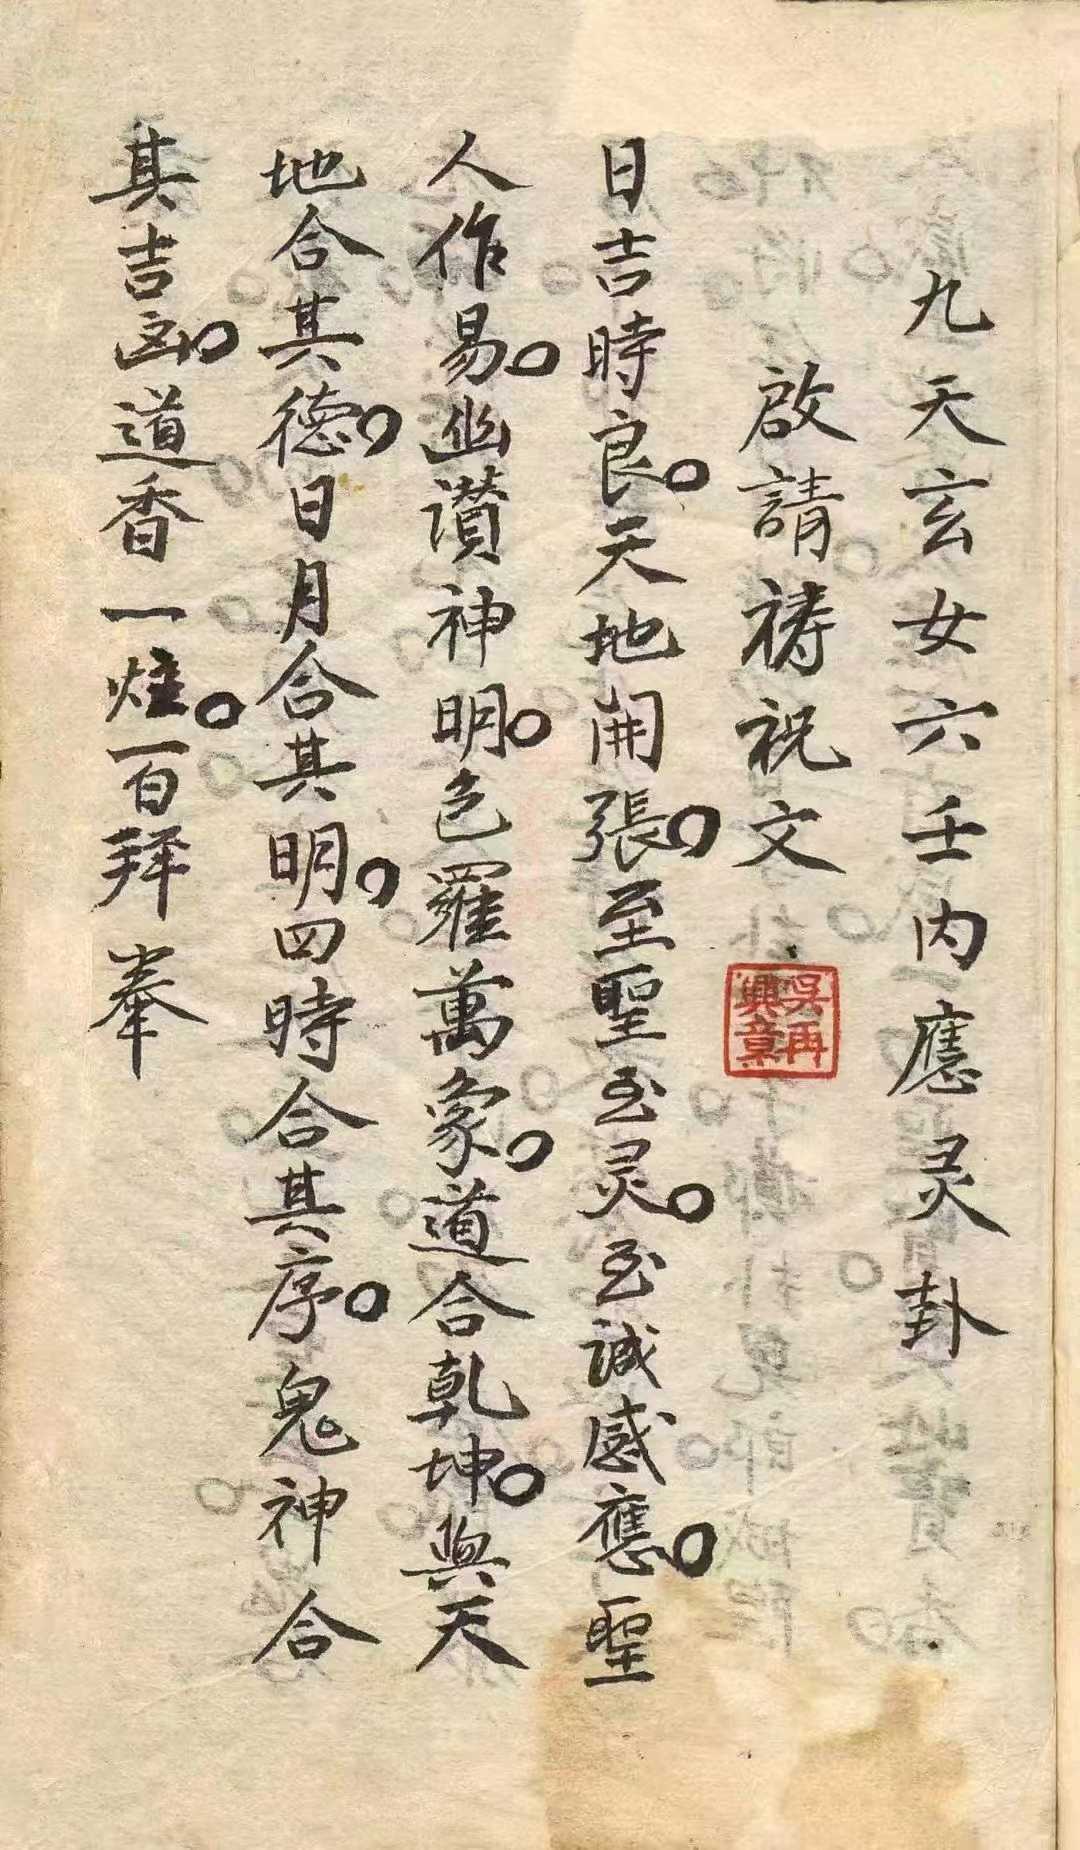 九天玄女六壬内應灵卦
啟請禱祝文
吳再興章
日吉時良。天地開張。至聖至灵。至誠感應。聖
人作易。幽讃神明。包羅萬象。道合乾坤。與天
地合其德。日月合其明。四時合其序。鬼神合
其吉凶。道香一炷。百拜奉